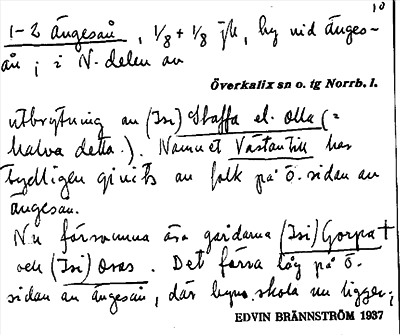 10
1-2 Ängesån, 1/8 + 1/8 , by vid Änges-
ån ; i N. delen av
Överkalix sn o. tg Norrb. l.
utbrytning av (Isi) Staffa el. Olla (=
halva detta.). Namnet Västantill har
tydligen givits av folk på ö. sidan av
Ängesån.
Nu försvunna äro gårdarna (Isi) Gorpa †
och (Isi) Oras. Det förra låg på ö.
sidan av Ängesån, där byns skola nu ligger;
EDVIN BRÄNNSTRÖM 1937